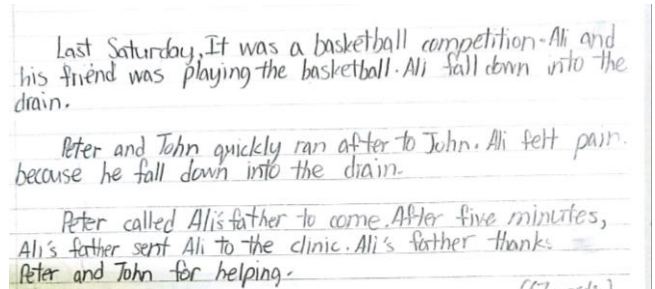 Last Saturday, It was a basketball competition. Ali and
his friend was playing the basketball. Ali fall down into the
drain.
Peter and John quickly ran after to John. Ali felt pain.
because he fall down into the drain.
Peter called Ali's father to come. After five minutes,
Ali's father sent Ali to the clinic. Ali's father thanks
Peter and John for helping.